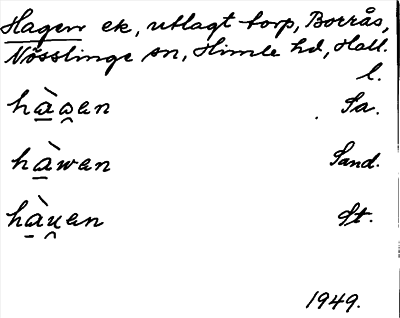 Hagen ek, utlagt torp, Borrås,
Nösslinge sn, Himle hd, Hall.
l.
hàꙍen Sa.
hàwen Sand.
hàu̯en St.
1949.